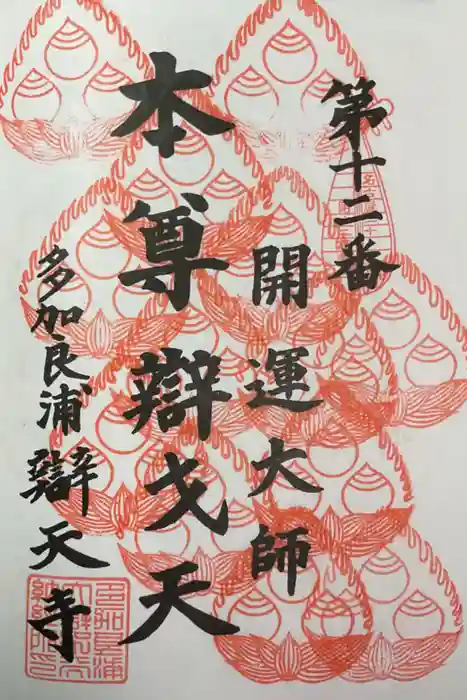 第十二番
開運大師
本尊辯戈天
多加良浦 辯天寺